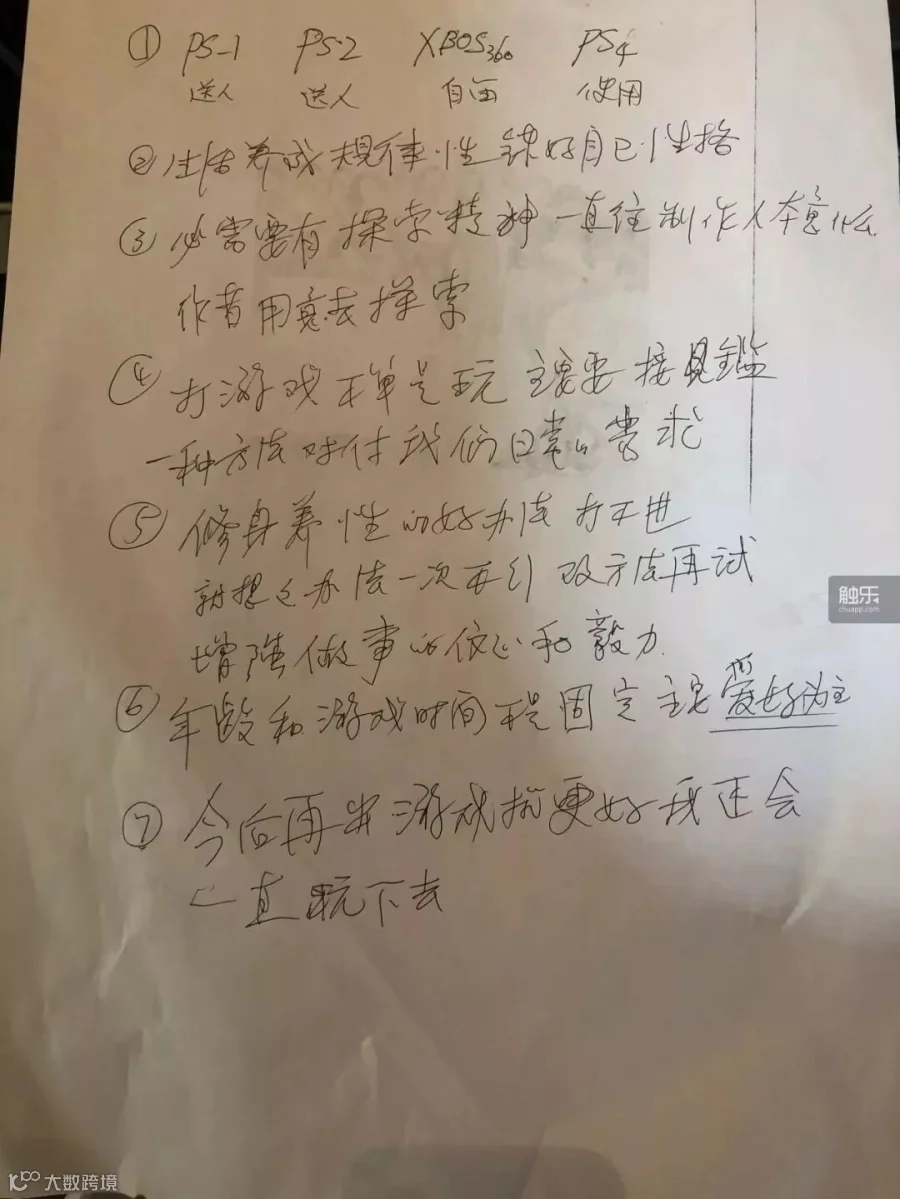 ① PS-1 PS-2 XBOS360 PS4
送人 送人 自由 使用
② 生活养成规律性 鍊好自己性格
③ 必需要有探索精神 一直往制作人本意什么
作者用意去探索
④ 打游戏不单是玩 主要要接見鑑
一种方法对付我们日常の要求
⑤ 修身养性的好办法 打不进
就想之办法一次再引 改方法再试
增强做事的信心和毅力.
⑥ 年龄和游戏时间不是固定 主要爱好为主
⑦ 今后再出游戏机更好我还会
一直玩下去
触乐
chuapp.com
大数跨境